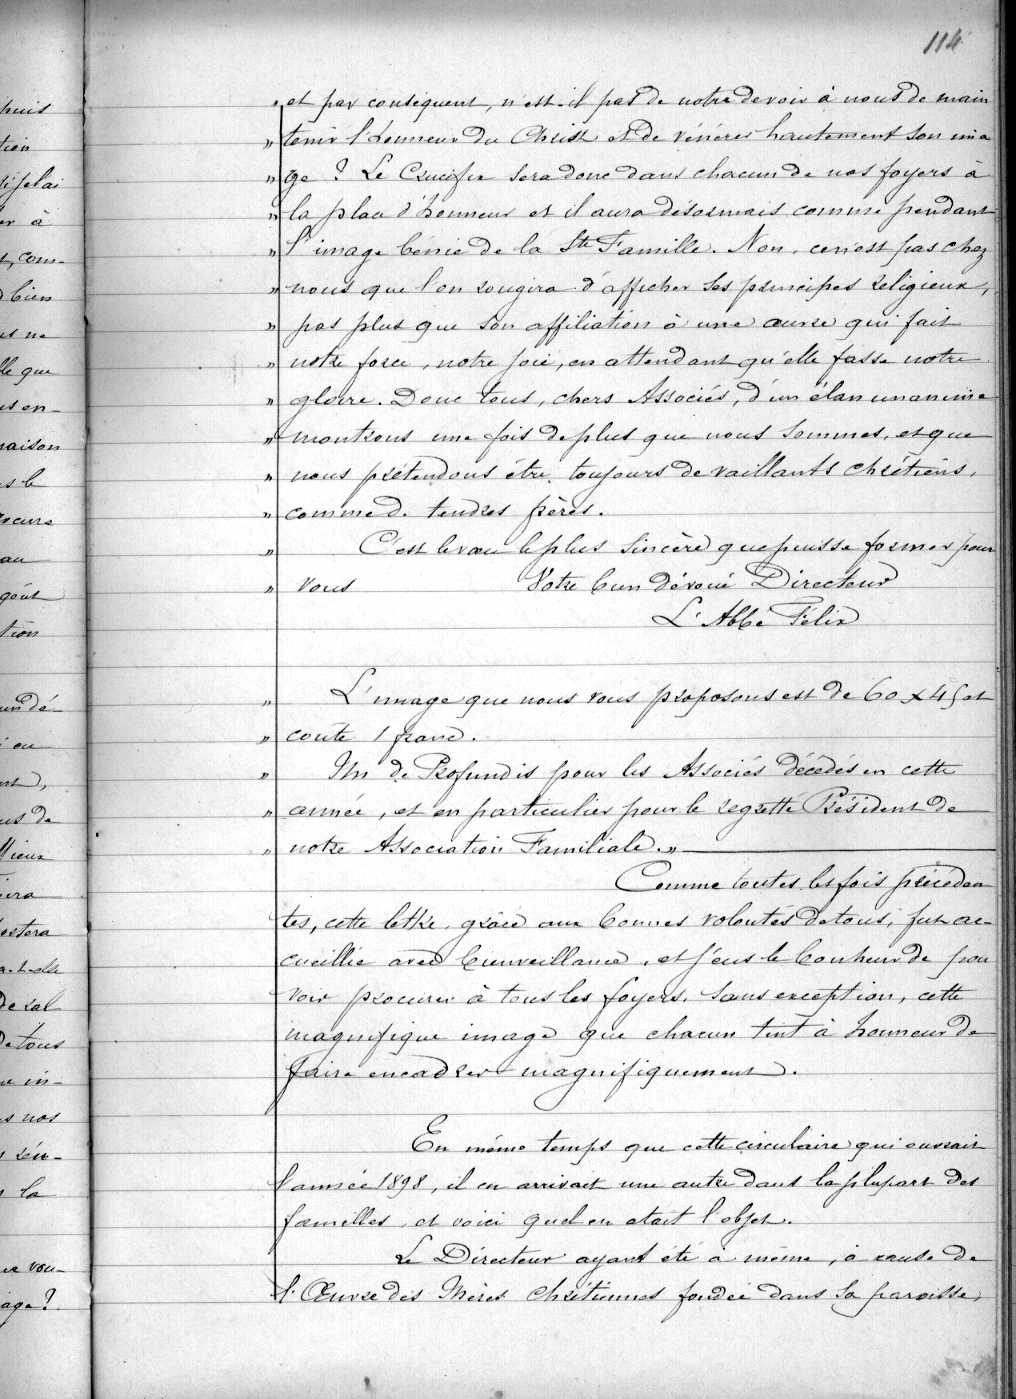 114
„ et par conséquent, n'est-il pas de notre devoir à nous de main
„ tenir l'honneur du Christ et de vénérer hautement son ima
„ ge ? Le Crucifix sera donc dans chacun de nos foyers à
„ la place d'honneur et il aura désormais comme pendant
„ l'image bénie de la Ste Famille. Non, ce n'est pas chez
„ nous que l'on rougira d'afficher ses principes religieux,
„ pas plus que son affiliation à une œuvre qui fait
„ notre force, notre joie, en attendant qu'elle fasse notre
„ gloire. Donc tous, chers Associés, d'un élan unanime
„ montrons une fois de plus que nous sommes, et que
„ nous prétendons être toujours de vaillants chrétiens,
„ comme d. tendres frères.
„ C'est le vœu le plus sincère que puisse former pour
„ vous Votre bien dévoué Directeur
L'Abbé Félix
„ L'image que nous vous proposons est de 60 x 45 et
„ coute 1 franc.
„ Un de Profundis pour les Associés décédés en cette
„ année, et en particulier pour le regretté Président de
„ notre Association Familiale. „
Comme toutes les fois précéden
tes, cette lettre, grâce aux bonnes volontés de tous, fut ac-
cueillie avec bienveillance, et j'eus le bonheur de pou
voir procurer à tous les foyers, sans exception, cette
magnifique image que chacun tint à honneur de
faire encadrer magnifiquement.
En même temps que cette circulaire qui ouvrait
l'année 1898, il en arrivait une autre dans la plupart des
familles, et voici quel en était l'objet.
Le Directeur ayant été à même, à cause de
l'Œuvre des Mères Chrétiennes fondée dans sa paroisse,
puis
tion
er à
t, com-
bien
us ne
lle que
us en-
maison
s le
au
goût
tion
un dé-
ou
us de
Mieux
de tous
in-
s nos
la
vou-
age ?